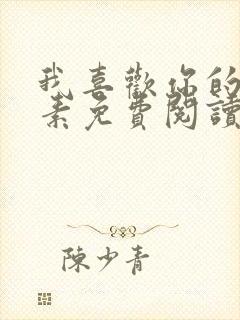 我喜歡你的
素免費閱讀
陳少青